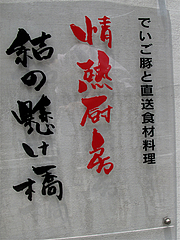 でいご豚と直送食材料理
情熱厨房
結の懸け橋